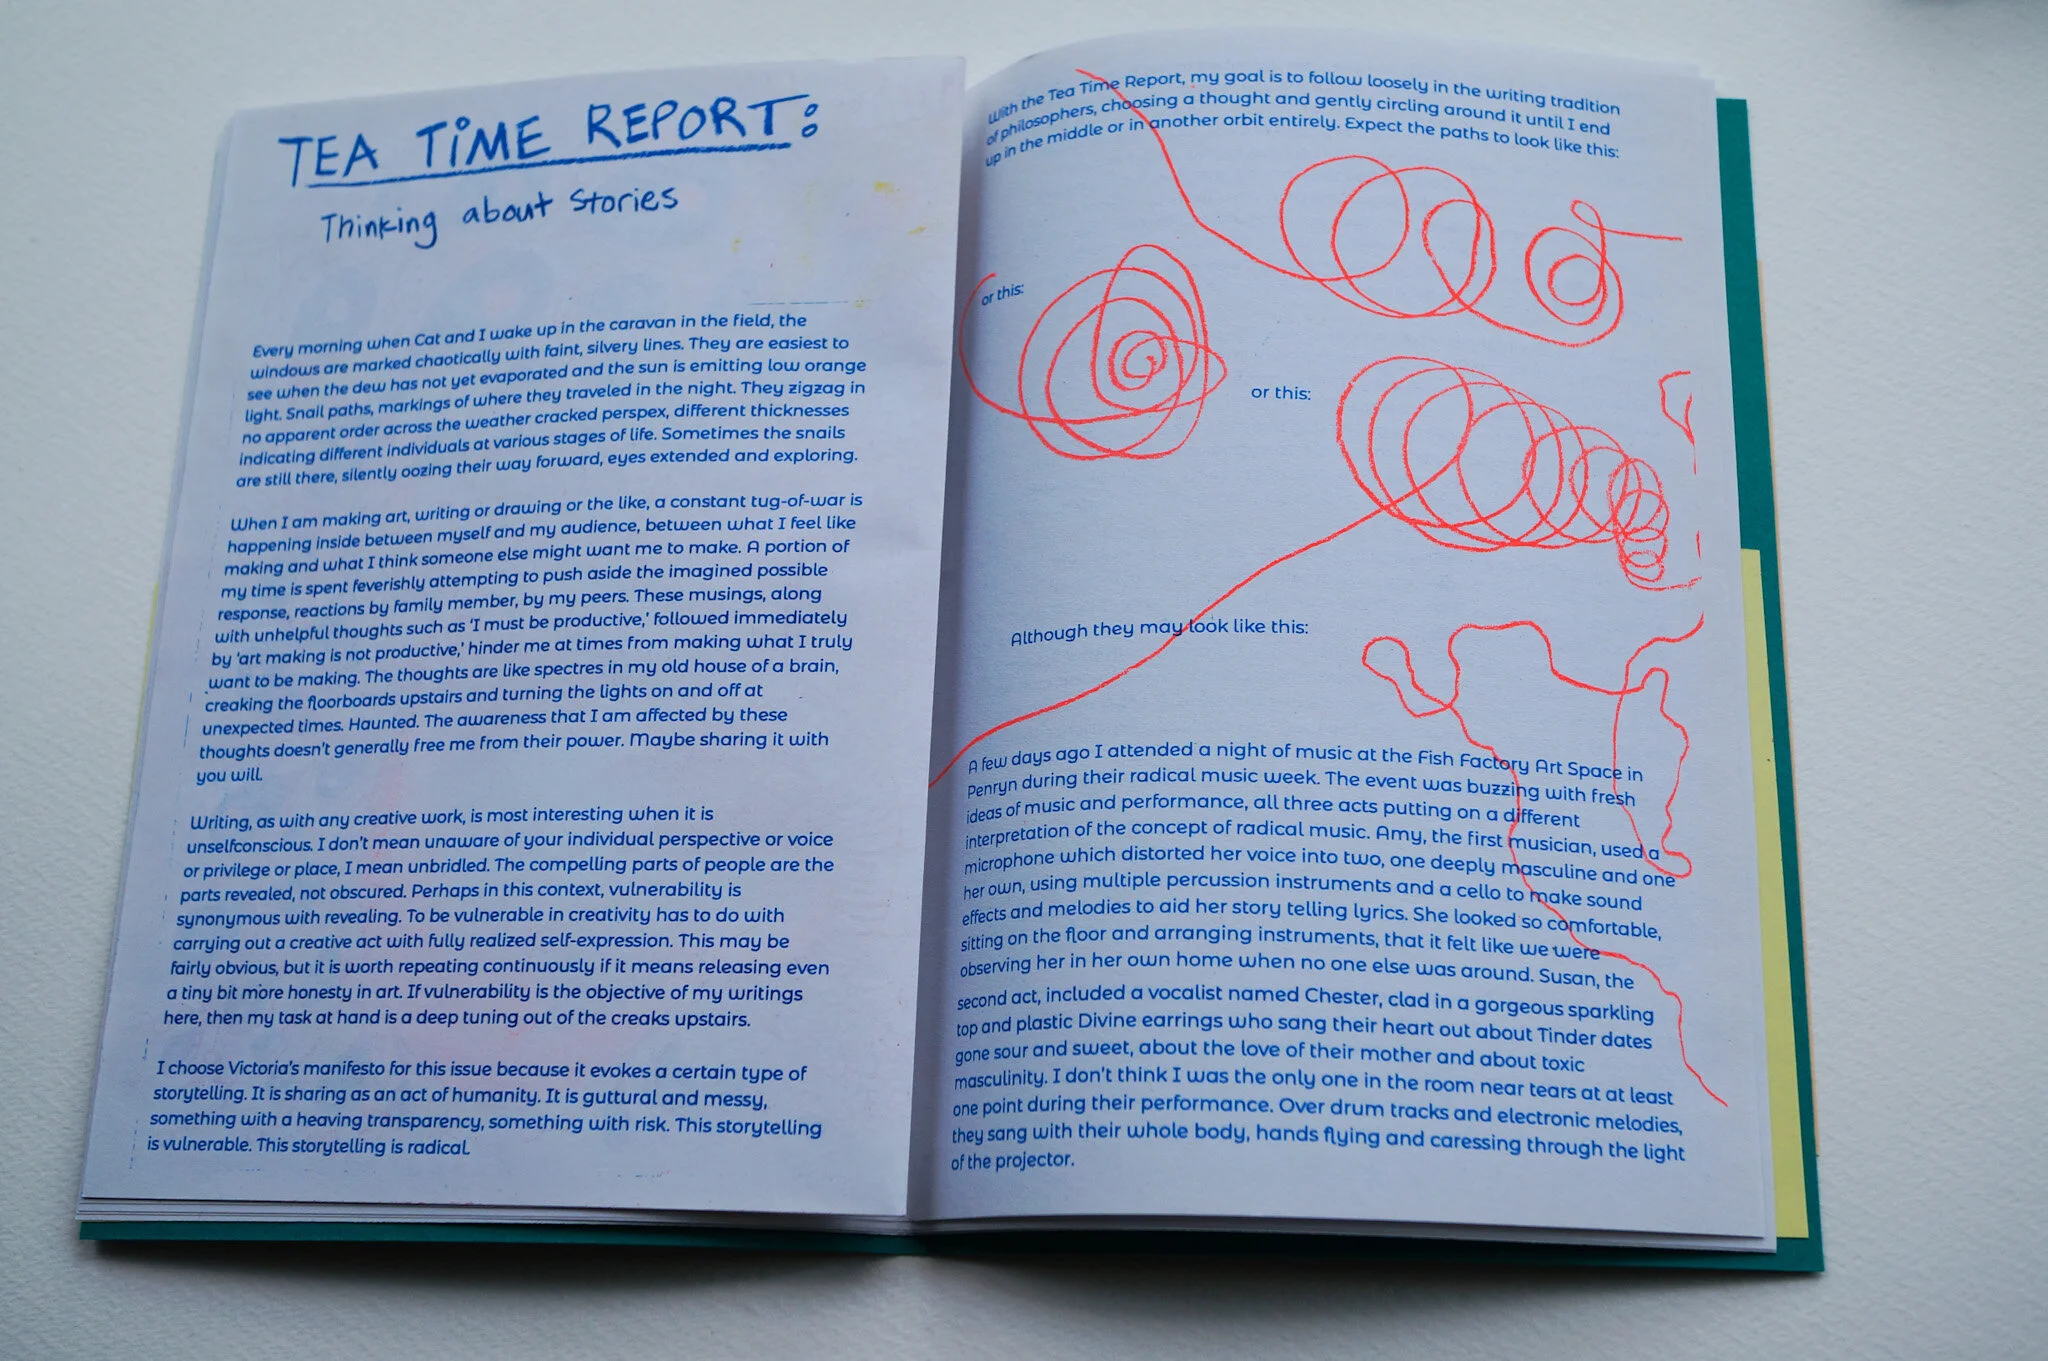 TEA TIME REPORT:
Thinking about Stories
Every morning when Cat and I wake up in the caravan in the field, the
windows are marked chaotically with faint, silvery lines. They are easiest to
see when the dew has not yet evaporated and the sun is emitting low orange
light. Snail paths, markings of where they traveled in the night. They zigzag in
no apparent order across the weather cracked perspex, different thicknesses
indicating different individuals at various stages of life. Sometimes the snails
are still there, silently oozing their way forward, eyes extended and exploring.
When I am making art, writing or drawing or the like, a constant tug-of-war is
happening inside between myself and my audience, between what I feel like
making and what I think someone else might want me to make. A portion of
my time is spent feverishly attempting to push aside the imagined possible
response, reactions by family member, by my peers. These musings, along
with unhelpful thoughts such as ‘I must be productive,’ followed immediately
by ‘art making is not productive,’ hinder me at times from making what I truly
want to be making. The thoughts are like spectres in my old house of a brain,
creaking the floorboards upstairs and turning the lights on and off at
unexpected times. Haunted. The awareness that I am affected by these
thoughts doesn’t generally free me from their power. Maybe sharing it with
you will.
Writing, as with any creative work, is most interesting when it is
unselfconscious. I don’t mean unaware of your individual perspective or voice
or privilege or place, I mean unbridled. The compelling parts of people are the
parts revealed, not obscured. Perhaps in this context, vulnerability is
synonymous with revealing. To be vulnerable in creativity has to do with
carrying out a creative act with fully realized self-expression. This may be
fairly obvious, but it is worth repeating continuously if it means releasing even
a tiny bit more honesty in art. If vulnerability is the objective of my writings
here, then my task at hand is a deep tuning out of the creaks upstairs.
I choose Victoria’s manifesto for this issue because it evokes a certain type of
storytelling. It is sharing as an act of humanity. It is guttural and messy,
something with a heaving transparency, something with risk. This storytelling
is vulnerable. This storytelling is radical.
With the Tea Time Report, my goal is to follow loosely in the writing tradition
of philosophers, choosing a thought and gently circling around it until I end
up in the middle or in another orbit entirely. Expect the paths to look like this:
or this:
or this:
Although they may look like this:
A few days ago I attended a night of music at the Fish Factory Art Space in
Penryn during their radical music week. The event was buzzing with fresh
ideas of music and performance, all three acts putting on a different
interpretation of the concept of radical music. Amy, the first musician, used a
microphone which distorted her voice into two, one deeply masculine and one
her own, using multiple percussion instruments and a cello to make sound
effects and melodies to aid her story telling lyrics. She looked so comfortable,
sitting on the floor and arranging instruments, that it felt like we were
observing her in her own home when no one else was around. Susan, the
second act, included a vocalist named Chester, clad in a gorgeous sparkling
top and plastic Divine earrings who sang their heart out about Tinder dates
gone sour and sweet, about the love of their mother and about toxic
masculinity. I don’t think I was the only one in the room near tears at at least
one point during their performance. Over drum tracks and electronic melodies,
they sang with their whole body, hands flying and caressing through the light
of the projector.